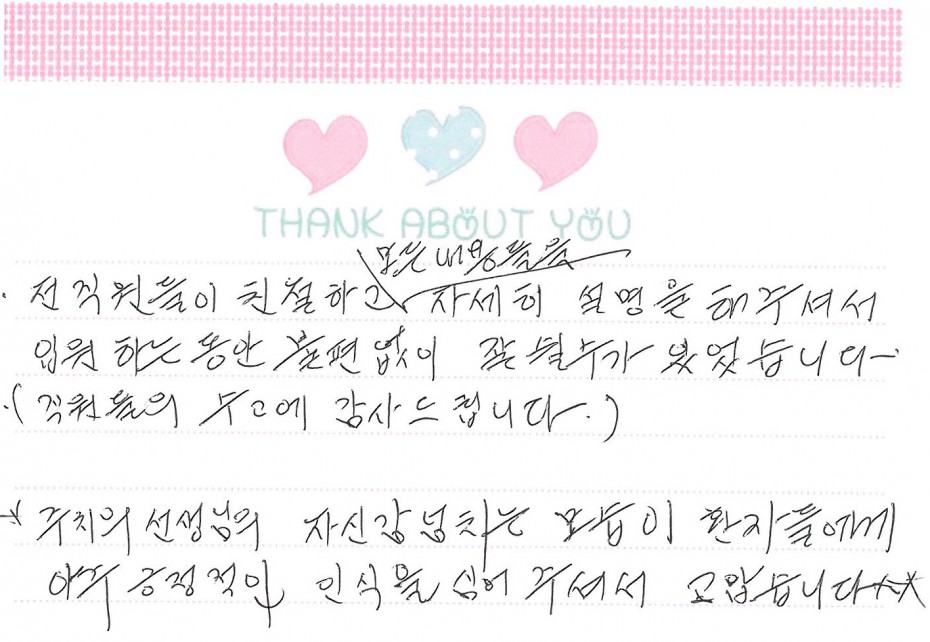 THANK ABOUT YOU
모든 내용들을
· 전 직원들이 친절하고 자세히 설명을 해주셔서
입원하는 동안 불편없이 잘 쉴수가 있었습니다.
·( 직원들의 수고에 감사드립니다.)
주치의 선생님의 자신감 넘치는 모습이 환자들에게
아주 긍정적인 인식을 심어 주셔서 고맙습니다